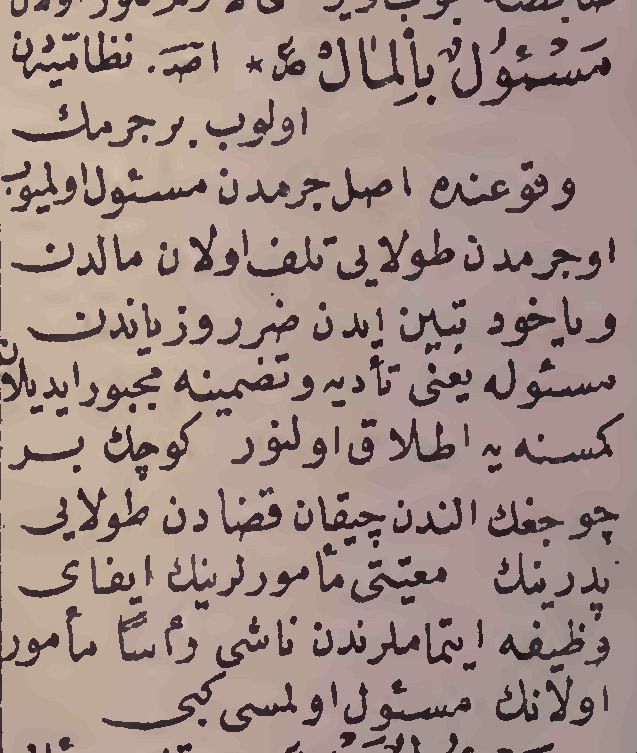 مَسْئُولٌ بِاْلمَالْ ص * اصـ. نظاميّه‌دن
اولوب بر جرمك
وقوعنده اصل جرمدن مسئول اولميوب
اوجرمدن طولايى تلف اولان مالدن
وياخود تبين ايدن ضرر وزياندن
مسئوله يعنى تأديه وتضمينه مجبور ايديلان
كمسنه يه اطلاق اولنور كوچك بر
چوجغك الندن چيقان قضادن طولايى
پدرينك معيّتى مأمورلرينك ايفاى
وظيفه ايتماملرندن ناشى رأساً مأمور
اولانك مسئول اولمسى كبى